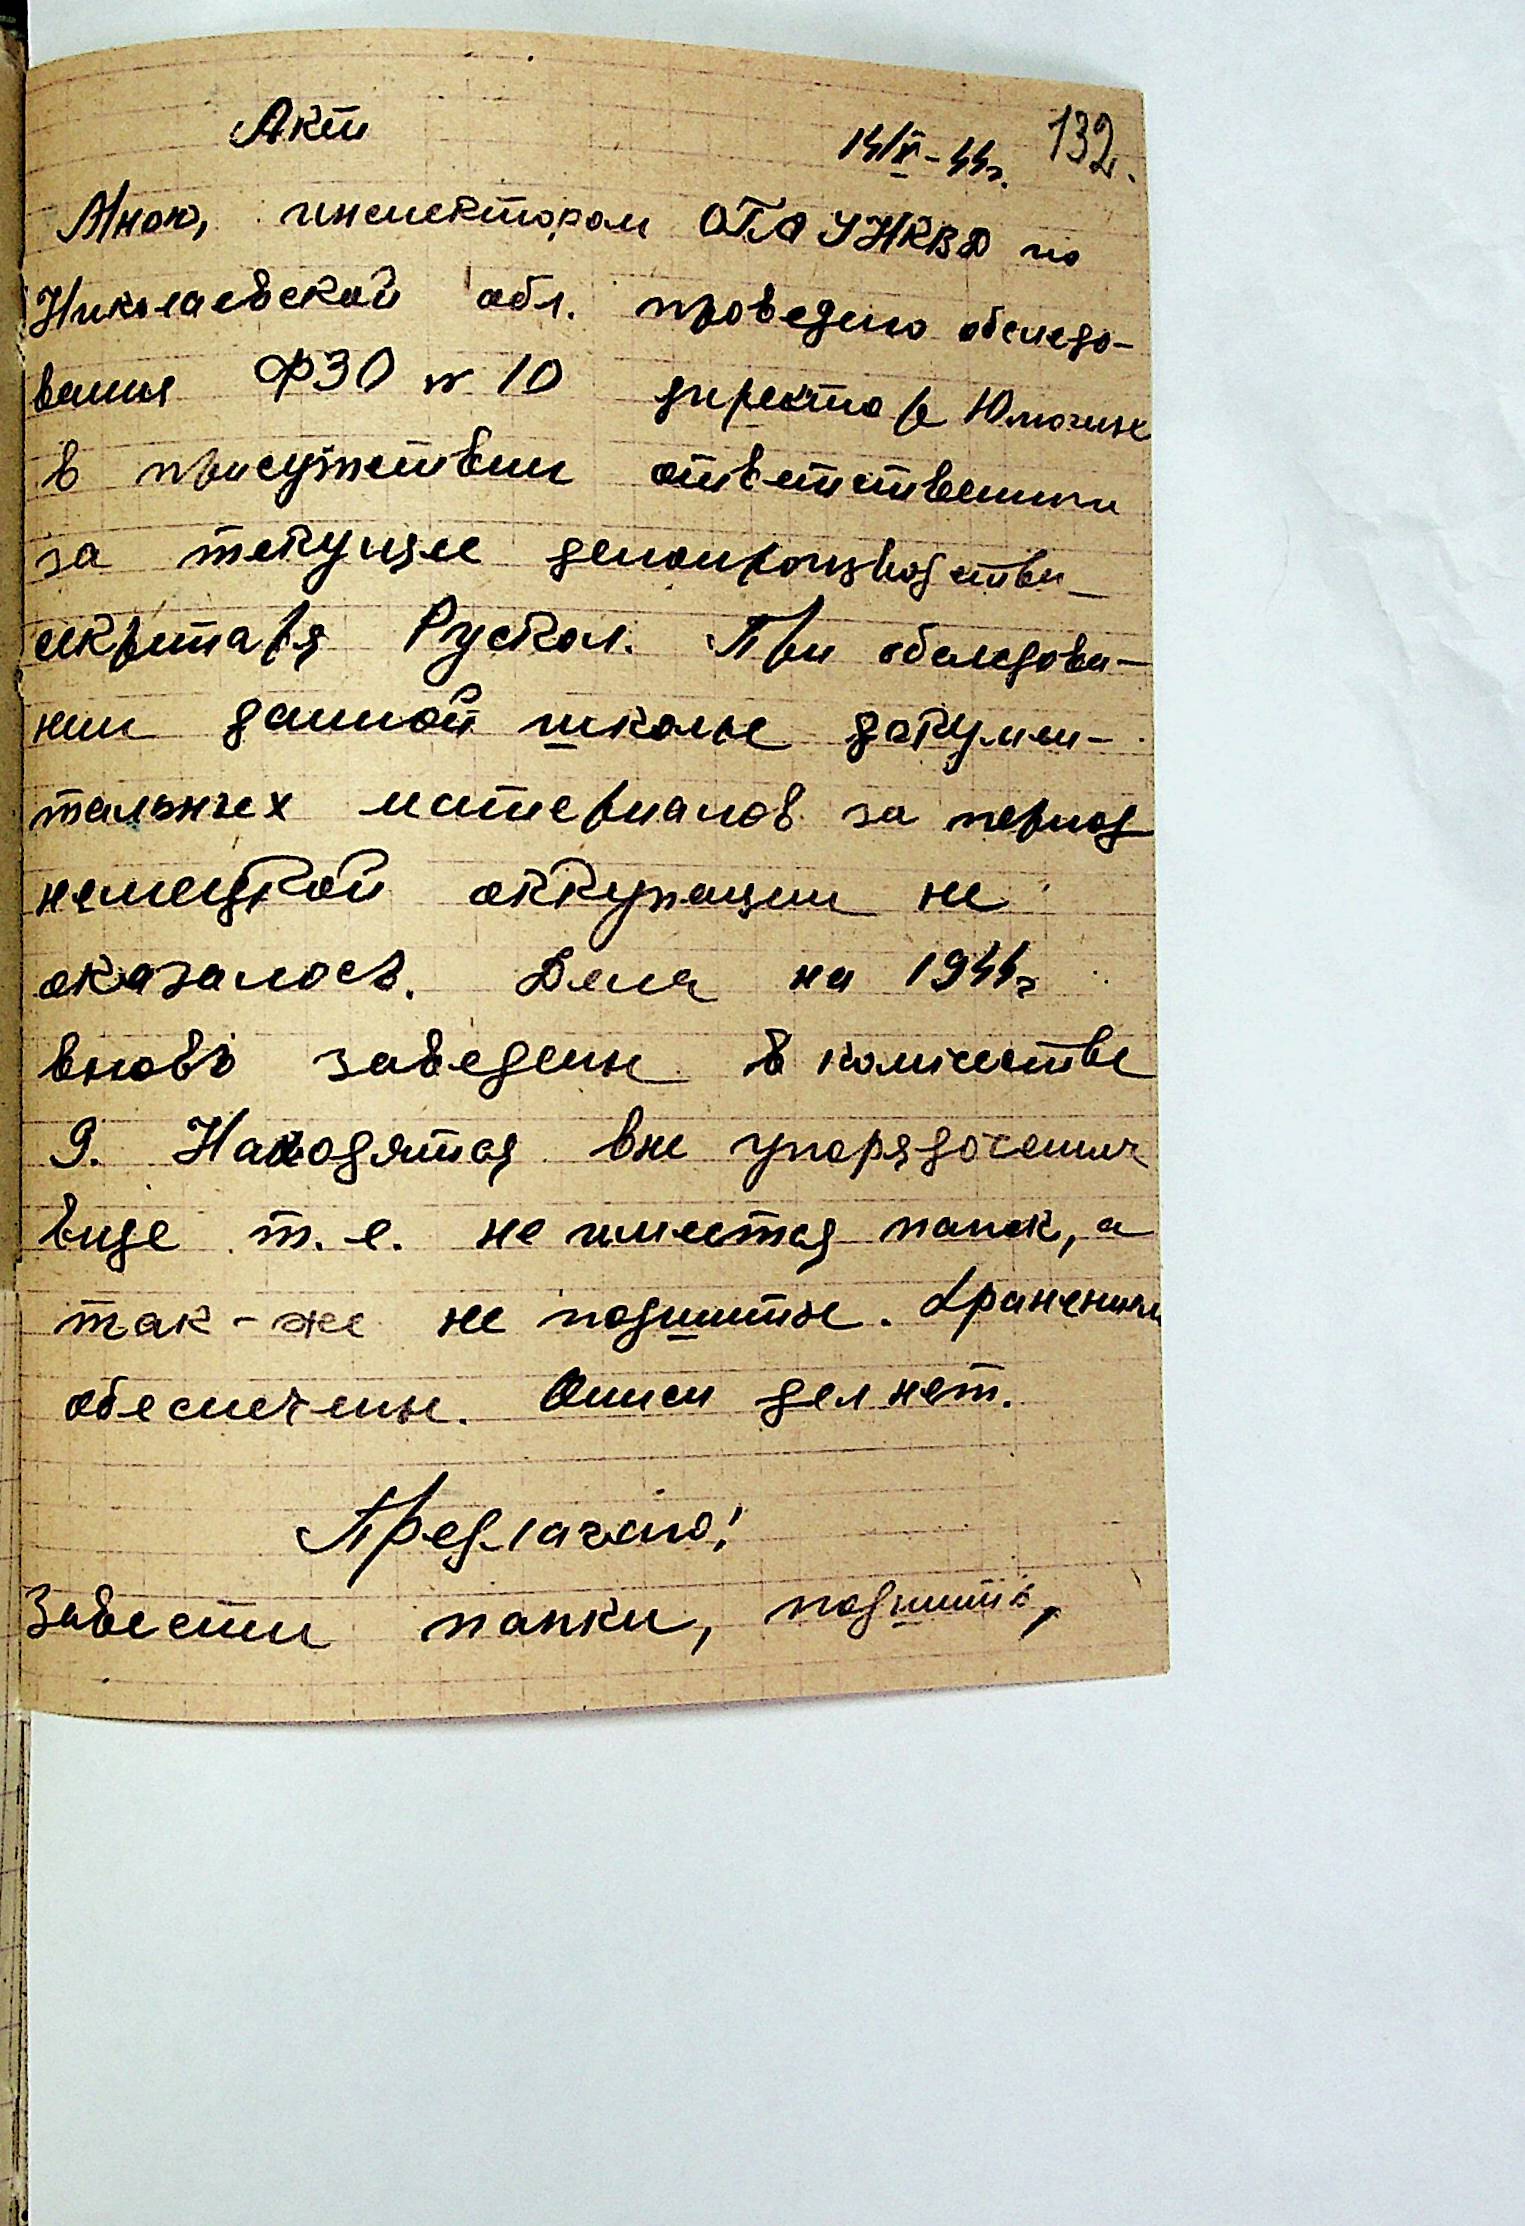 Акт
14/X-44г. 132.
Мною, инспектором ОГА УНКВД по
Николаевской обл. проведено обследо-
вание ФЗО № 10 директор
в присутствии ответственного
за текущее делопроизводство
секретаря Рускол. При обследова-
нии данной школы докумен-
тальных материалов за период
немецкой оккупации не
оказалось. Дела на 1944г
вновь заведены в количестве
9. Находятся вне упорядоченич
виде т. е. не имеются папок, а
так-же не подшиты. Хранением
обеспечены. Описи дел нет.
Предлагаю!
Завести папки, подшить,